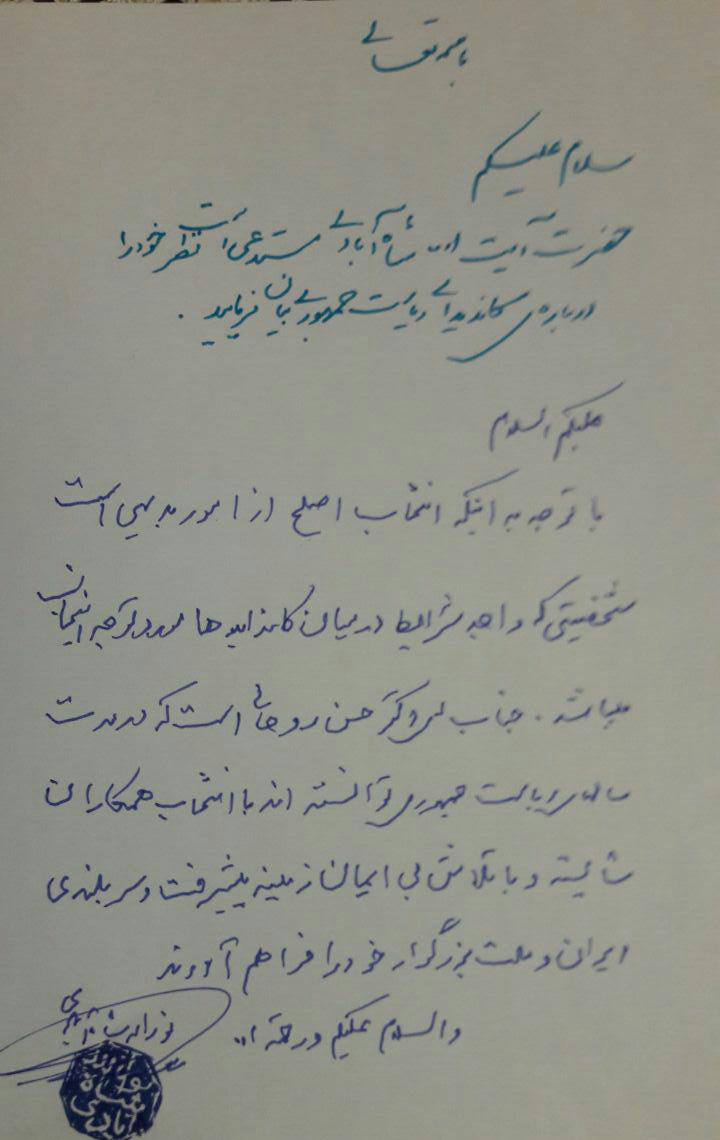 باسمه تعالی
سلام علیکم
حضرت آیت ا... شاه آبادی مستدعی است نظر خود را
درباره ی کاندیدای ریاست جمهوری بیان فرمایید .
علیکم السلام
با توجه به اینکه انتخاب اصلح از امور بدیهی است
شخصیتی که واجد شرایط در میان کاندیداها مورد توجه اینجانب
میباشد . جناب آقای دکتر حسن روحانی است که در مدت
ریاست جمهوری توانسته اند با انتخاب همکاران
شایسته و با تلاش بی امان زمینه پیشرفت و سربلندی
ایران و ملت بزرگوار خود را فراهم آورند
والسلام علیکم و رحمة ا...
نورالله شاه آبادی
نورالله
شاه
آبادی